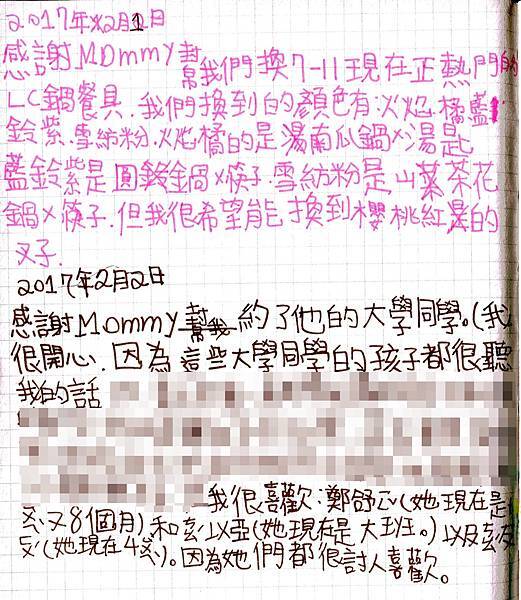 2017年2月1日
感謝MOmmy幫我們換7-11現在正熱門的
LC鍋餐具.我們換到的顏色有:火焰橘藍
鈴紫.雪紡粉.火焰橘的是湯南瓜鍋×湯匙
藍鈴紫是圓鍋×筷子.雪紡粉是山茶花
鍋×筷子.但我很希望能換到櫻桃紅的
叉子.
2017年2月2日
感謝Mommy約了他的大學同學。(我
很開心.因為這些大學同學的孩子都很聽
我的話
我很喜歡:鄭舒心(她現在是
又8個月)和彭以亞(她現在是大班。)以及彭
(她現在4歲)。因為她們都很討人喜歡。